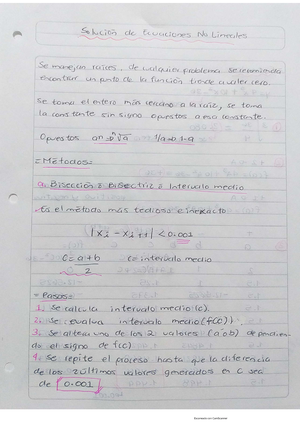 Solución de Ecuaciones No Lineales
Se manejan raíces, de cualquier problema se recomienda
encontrar un punto de la función tiende a valer cero.
Se toma el entero más cercano a la raíz, se toma
la constante sin signo opuestos a esa constante.
Opuestos aⁿ → ⁿ√a
= Métodos=
Bisección = Bisectriz = Intervalo medio
Es el método más tedioso e inexacto
|x₁ - x₁₊₁| < 0.001
C = a+b
2
C = intervalo medio
= Pasos=
1. Se calcula intervalo medio (c).
2. Se evalua intervalo medio [f(c)].
3. Se altera uno de los 2 valores (a o b) dependien-
do el signo de f(c).
4. Se repite el proceso hasta que la diferencia
de los 2 últimos valores generados en c sea
de 0.001